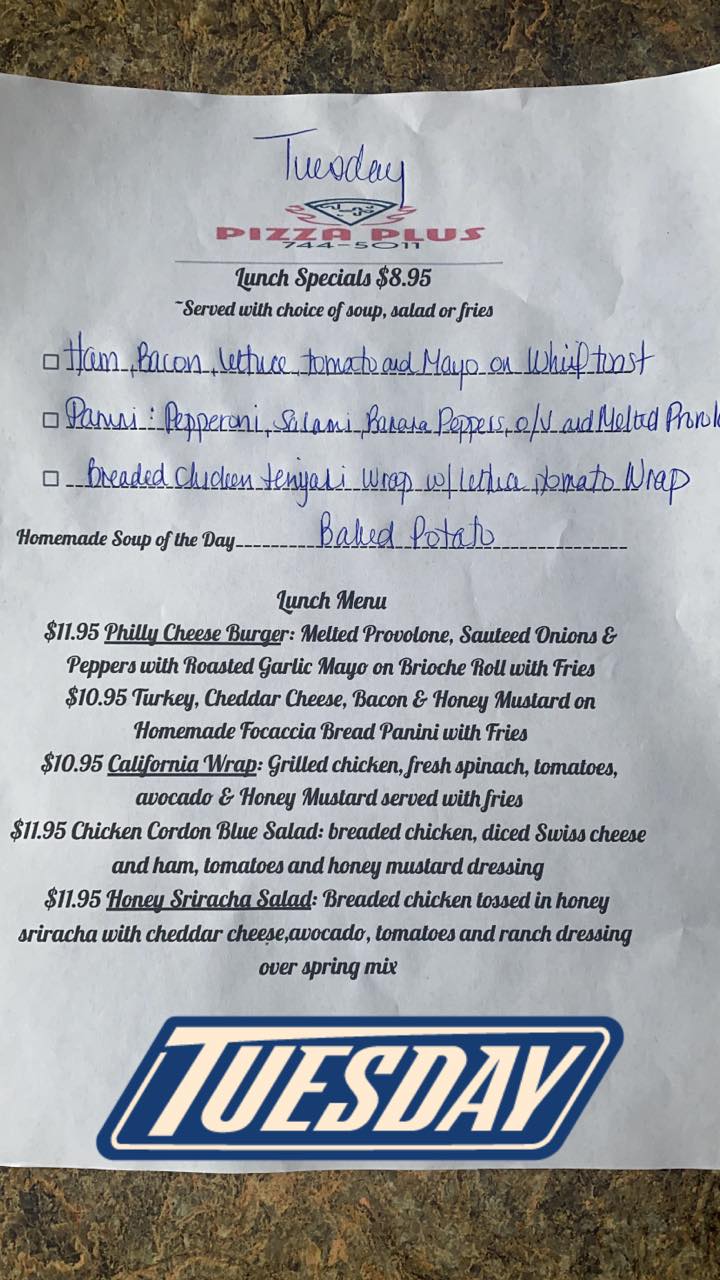 Tuesday
PIZZA PLUS
744-5011
Lunch Specials $8.95
~Served with choice of soup, salad or fries
Ham, Bacon, lettuce, tomato and Mayo on toast
Panini: Pepperoni, Salami, Banana Peppers, o/v and Melted
Breaded Chicken teriyaki Wrap w/ lettuce tomato Wrap
Homemade Soup of the Day Baked Potato
Lunch Menu
$11.95 Philly Cheese Burger: Melted Provolone, Sauteed Onions &
Peppers with Roasted Garlic Mayo on Brioche Roll with Fries
$10.95 Turkey, Cheddar Cheese, Bacon & Honey Mustard on
Homemade Focaccia Bread Panini with Fries
$10.95 California Wrap: Grilled chicken, fresh spinach, tomatoes,
avocado & Honey Mustard served with fries
$11.95 Chicken Cordon Blue Salad: breaded chicken, diced Swiss cheese
and ham, tomatoes and honey mustard dressing
$11.95 Honey Sriracha Salad: Breaded chicken tossed in honey
sriracha with cheddar cheese,avocado, tomatoes and ranch dressing
over spring mix
TUESDAY